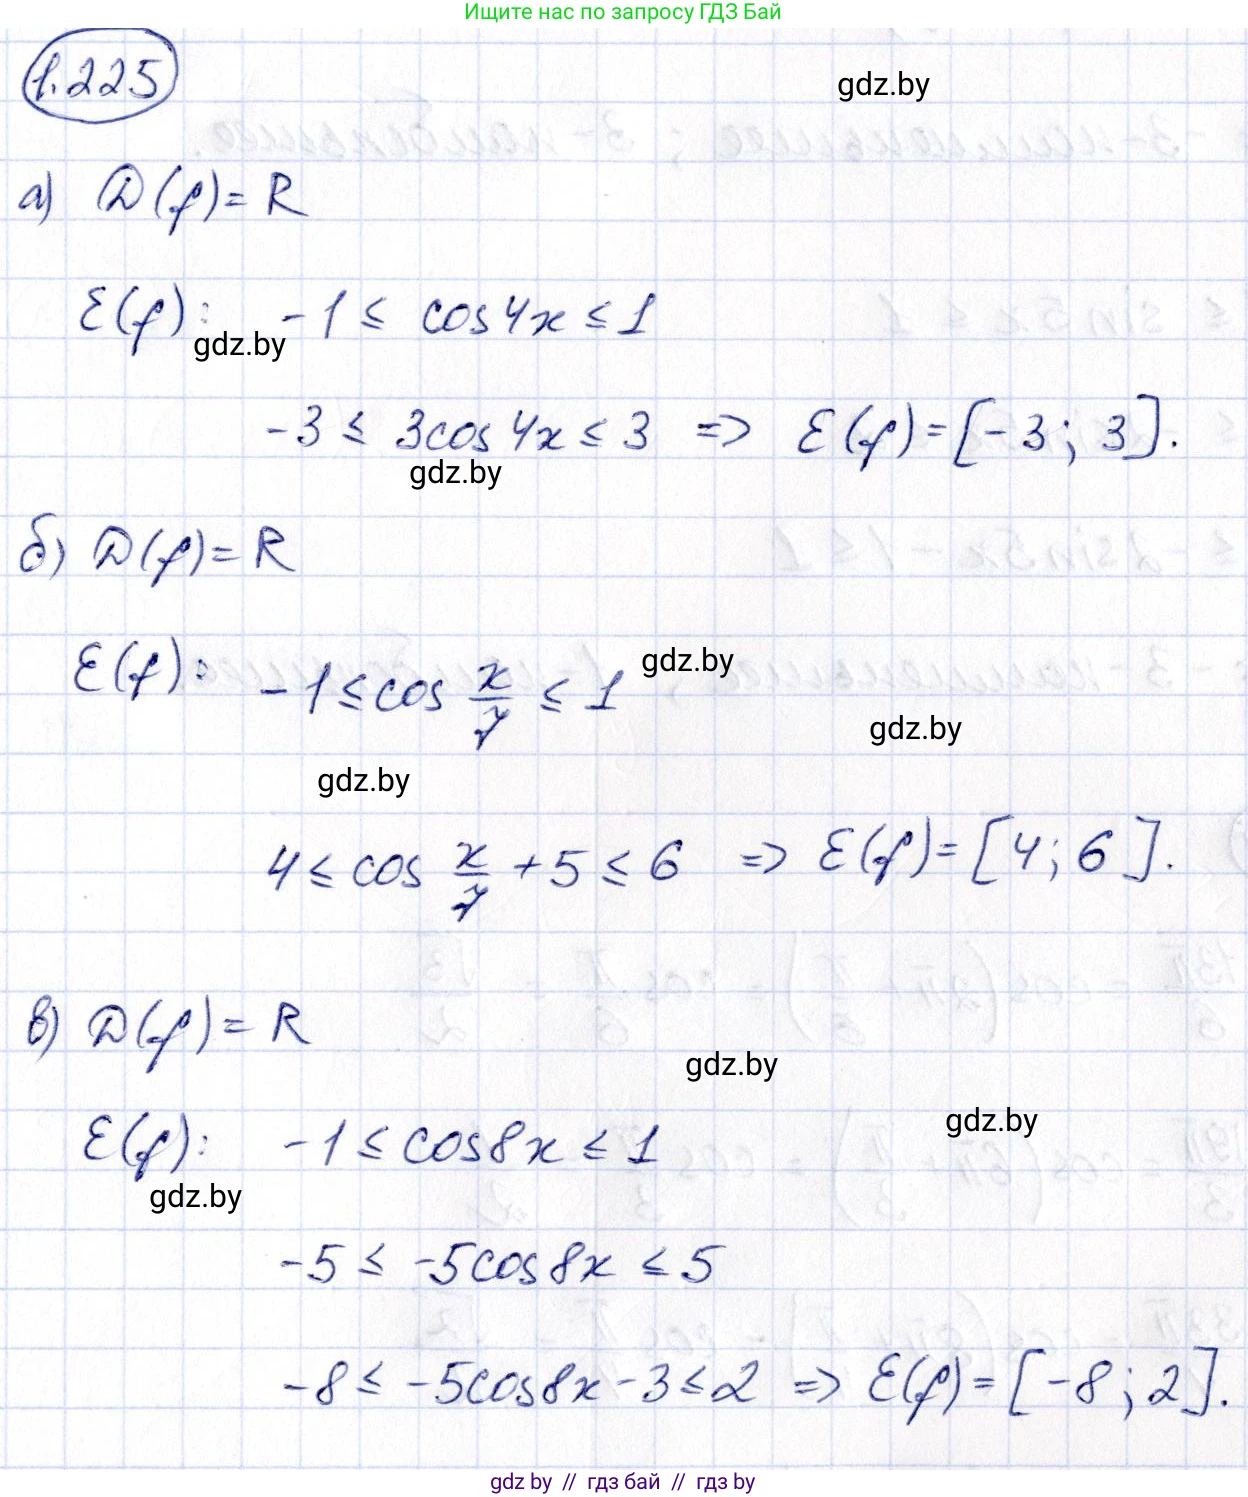 Ищите нас по запросу ГДЗ Бай
1.225
gdz.by
а) D(f) = R
E(f): -1 ≤ cos4x ≤ 1
gdz.by
-3 ≤ 3cos4x ≤ 3 => E(f) = [-3; 3].
gdz.by
б) D(f) = R
E(f): -1 ≤ cos x/7 ≤ 1
gdz.by
gdz.by
gdz.by
4 ≤ cos x/7 + 5 ≤ 6 => E(f) = [4; 6].
в) D(f) = R
gdz.by
gdz.by
E(f): -1 ≤ cos8x ≤ 1
gdz.by
-5 ≤ -5cos8x ≤ 5
-8 ≤ -5cos8x - 3 ≤ 2 => E(f) = [-8; 2].
gdz by // гдз бай // гдз by